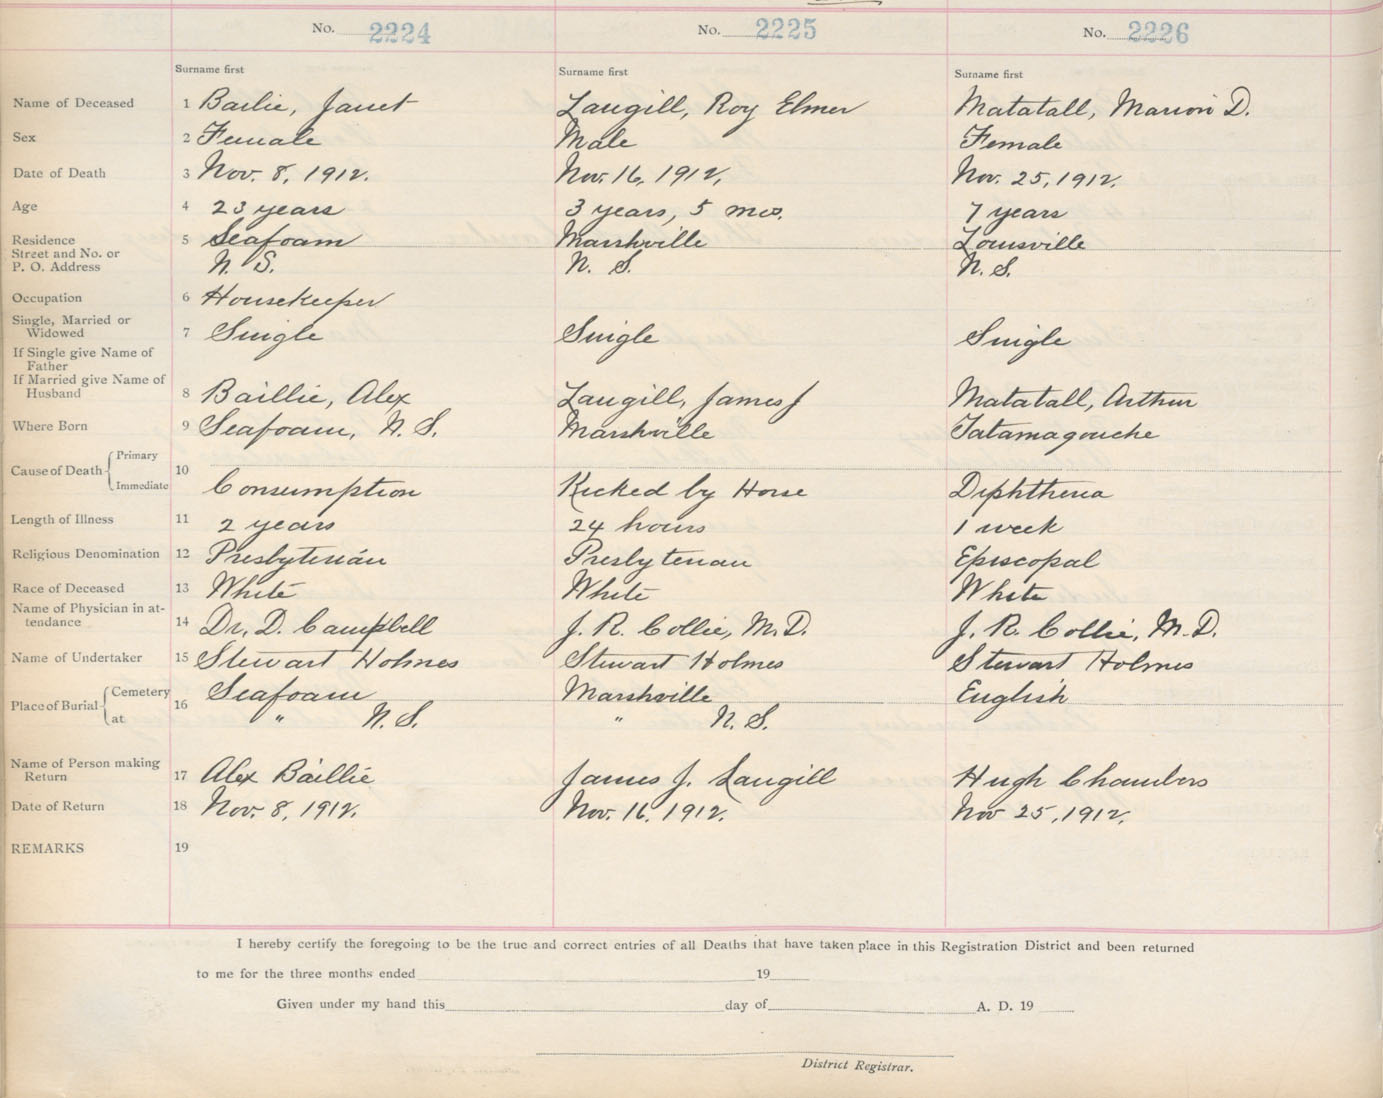 No. 2224 No. 2225 No. 2226
Surname first Surname first Surname first
Name of Deceased 1 Bailie, Janet Langill, Roy Elmer Matatall, Marion D.
Sex 2 Female Male Female
Date of Death 3 Nov. 8, 1912. Nov. 16, 1912, Nov. 25, 1912.
Age 4 23 years 3 years, 5 mos. 7 years
Residence 5 Seafoam Marshville Louisville
Street and No. or
P. O. Address N. S. N. S. N. S.
Occupation 6 Housekeeper
Single, Married or
Widowed 7 Single Single Single
If Single give Name of
Father
If Married give Name of
Husband 8 Baillie, Alex Langill, James J Matatall, Arthur
Where Born 9 Seafoam, N. S. Marshville Tatamagouche
Cause of Death Primary 10
Immediate Consumption Kicked by Horse Diphtheria
Length of Illness 11 2 years 24 hours 1 week
Religious Denomination 12 Presbyterian Presbyterian Episcopal
Race of Deceased 13 White White White
Name of Physician in at-
tendance 14 Dr. D. Campbell J. R. Collie, M.D. J. R. Collie, M.D.
Name of Undertaker 15 Stewart Holmes Stewart Holmes Stewart Holmes
Place of Burial Cemetery 16 Seafoam Marshville English
at " N. S. " N. S.
Name of Person making
Return 17 Alex Baillie James J. Langill Hugh Chambers
Date of Return 18 Nov. 8, 1912. Nov. 16, 1912. Nov 25, 1912.
REMARKS 19
I hereby certify the foregoing to be the true and correct entries of all Deaths that have taken place in this Registration District and been returned
to me for the three months ended 19
Given under my hand this day of A. D. 19
District Registrar.